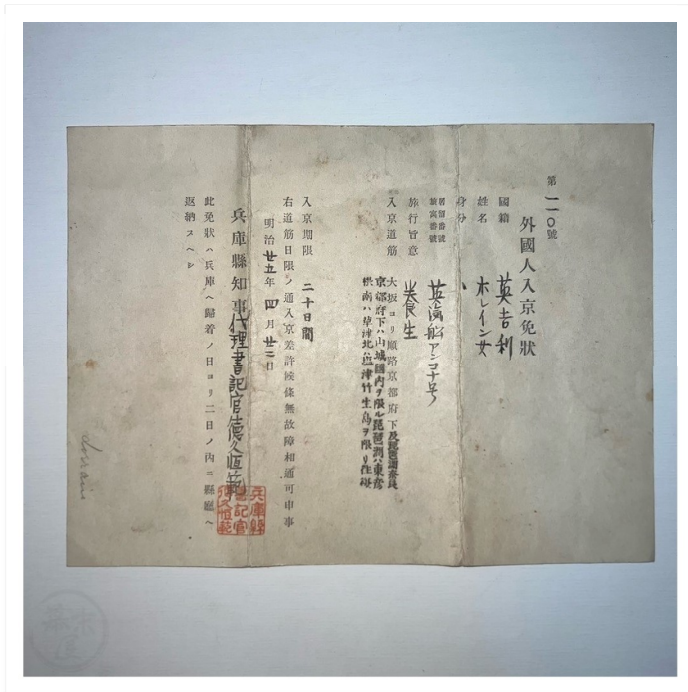 第一一〇號
外國人入京免狀
國籍 英吉利
姓名 ホレイン女
身分
居留番號
旅寓番號 英滊船アンコナ号
旅行旨意 養生
入京道筋 大坂ヨリ順路京都府下及琵琶湖奈良
京都府下ハ山城國内ヲ限ル琵琶湖ハ東彦
根南ハ草津北ハ塩津竹生島ヲ限リ
入京期限 二十日間
右道筋日限ノ通入京差許候條無故障相通可申事
明治廿五年四月廿二日
兵庫縣知事代理書記官德久恒範
兵庫縣
書記官
德久恒範
此免狀ハ兵庫ヘ歸着ノ日ヨリ二日ノ内ニ縣廳ヘ
返納スヘシ
Lorrain